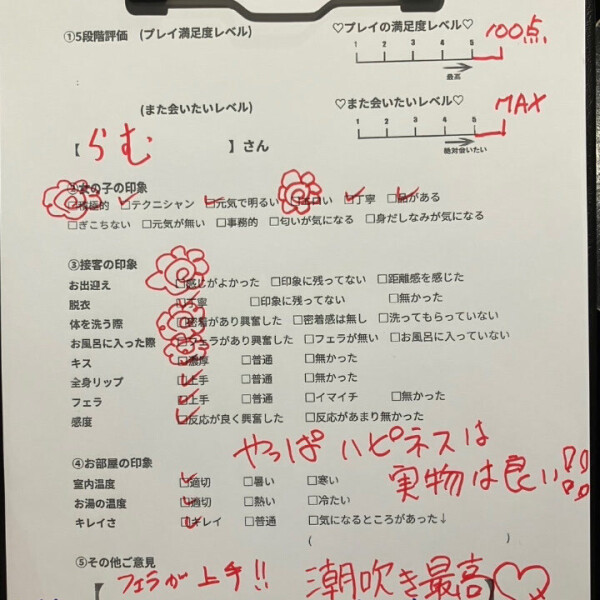 ①5段階評価 (プレイ満足度レベル) ♡プレイの満足度レベル♡ 100点
1 2 3 4 5
最高
(また会いたいレベル) ♡また会いたいレベル♡ MAX
1 2 3 4 5
絶対会いたい
【 らむ 】さん
②女の子の印象
☐積極的 ☐テクニシャン ☐元気で明るい ☐エロい ☐丁寧 ☐品がある
☐ぎこちない ☐元気が無い ☐事務的 ☐匂いが気になる ☐身だしなみが気になる
③接客の印象
お出迎え ☐感じがよかった ☐印象に残ってない ☐距離感を感じた
脱衣 ☐丁寧 ☐印象に残ってない ☐無かった
体を洗う際 ☐密着があり興奮した ☐密着感は無し ☐洗ってもらっていない
お風呂に入った際 ☐フェラがあり興奮した ☐フェラが無い ☐お風呂に入っていない
キス ☐濃厚 ☐普通 ☐無かった
全身リップ ☐上手 ☐普通 ☐無かった
フェラ ☐上手 ☐普通 ☐イマイチ ☐無かった
感度 ☐反応が良く興奮した ☐反応があまり無かった
やっぱハピネスは
実物は良い!!
④お部屋の印象
室内温度 ☐適切 ☐暑い ☐寒い
お湯の温度 ☐適切 ☐熱い ☐冷たい
キレイさ ☐キレイ ☐普通 ☐気になるところがあった↓
( )
⑤その他ご意見
【 フェラが上手!! 潮吹き最高♡ 】